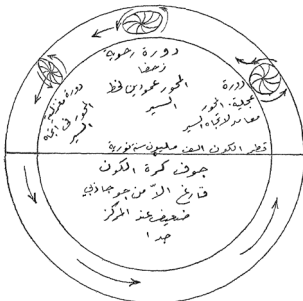 دورة رحوية
زحفا
المحور لخط
السير
دورة
عجلية . المحور
معامد لاتجاه السير
دورة مغزلية
المحور في اتجاه
السير
قطر الكون الف مليون سنة نورية
جوف كرة الكون
فارغ الا من جو جاذبي
ضعيف عند المركز
جدا